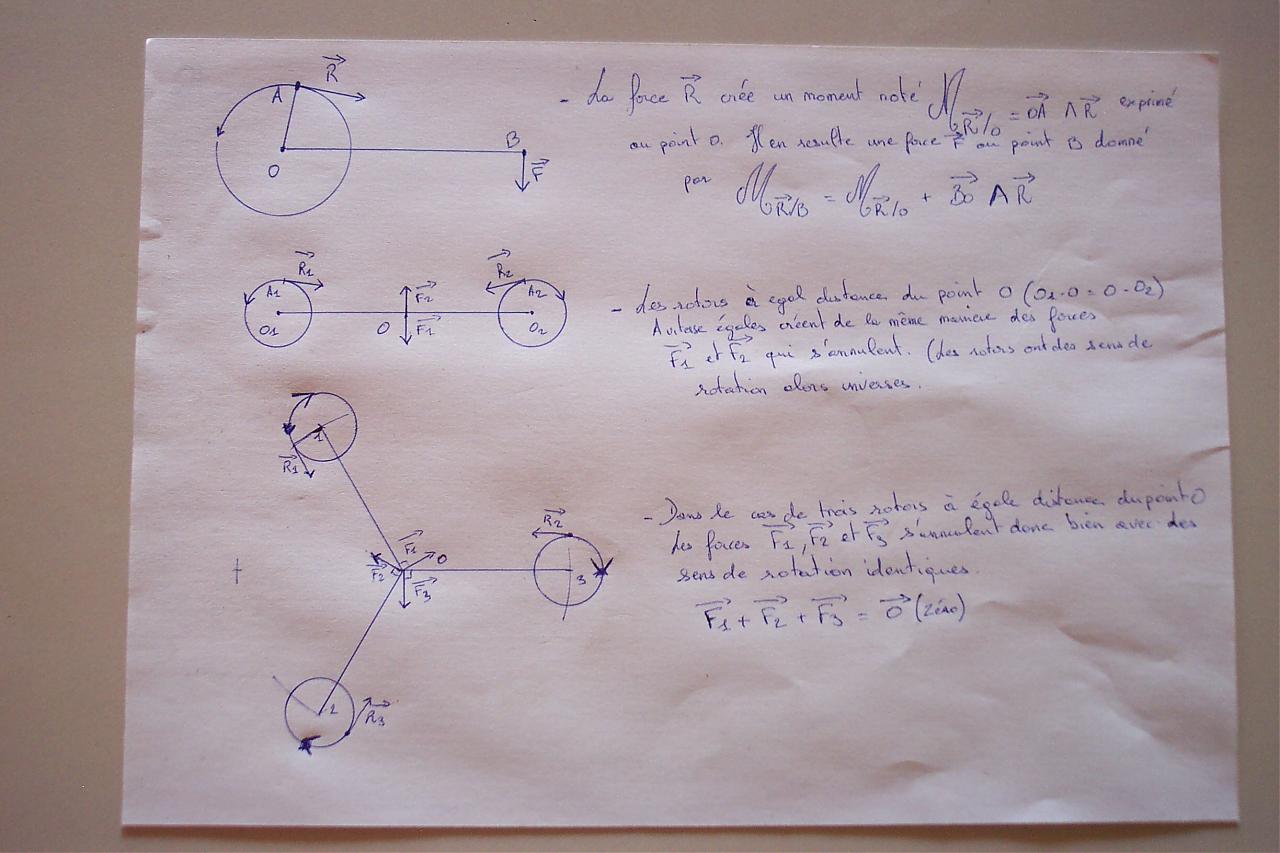 R
A
O
B
F
- La force R crée un moment noté M R/O = OA ∧ R exprimé
au point O. Il en resulte une force F au point B donné
par M R/B = M R/O + BO ∧ R
R1
A1
O1
F2
O
F1
R2
A2
O2
- Les rotors à egal distance du point O (O1-O = O-O2)
A vitesse égales créent de la même manière des forces
F1 et F2 qui s'annulent. (Les rotors ont des sens de
rotation alors inverses.
1
R1
F1
O
F2
F3
R2
3
2
R3
- Dans le cas de trois rotors à égale distance du point O
Les forces F1, F2 et F3 s'annulent donc bien avec des
sens de rotation identiques.
F1 + F2 + F3 = O (zéro)